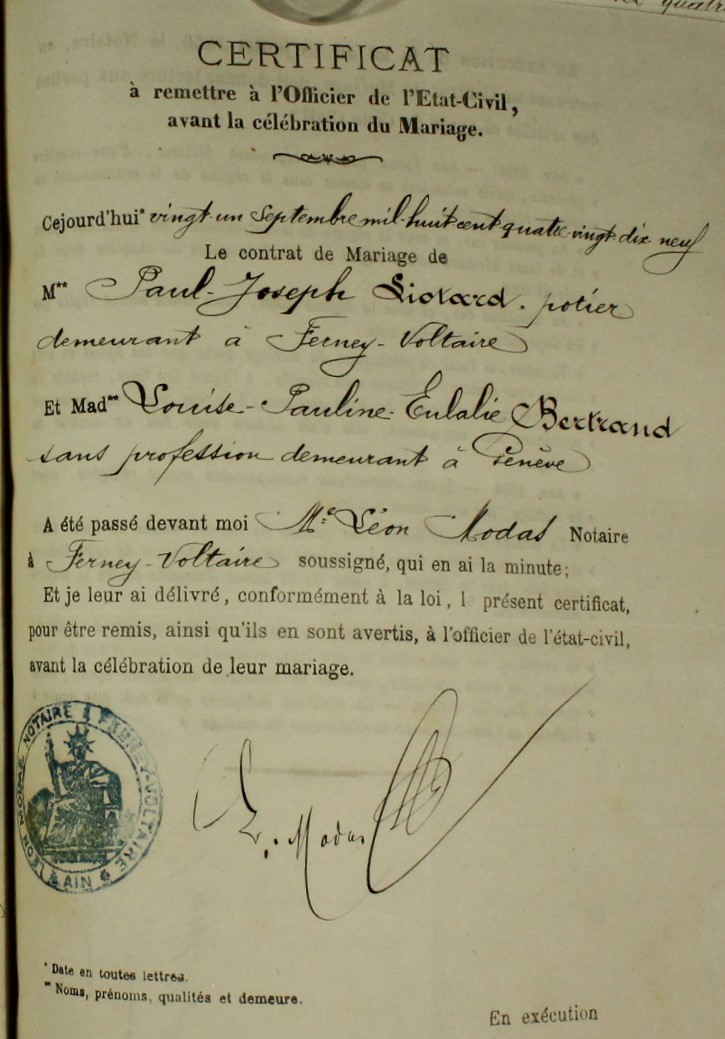 quatre
CERTIFICAT
à remettre à l'Officier de l'Etat-Civil,
avant la célébration du Mariage.
Cejourd'hui* vingt-un Septembre mil-huit-cent-quatre-vingt-dix-neuf
Le contrat de Mariage de
M** Paul-Joseph Liotard, potier
demeurant à Ferney-Voltaire
Et Mad** Louise-Pauline-Eulalie Bertrand
sans profession demeurant à Genève
A été passé devant moi Me Léon Modas Notaire
à Ferney-Voltaire soussigné, qui en ai la minute;
Et je leur ai délivré, conformément à la loi, l présent certificat,
pour être remis, ainsi qu'ils en sont avertis, à l'officier de l'état-civil,
avant la célébration de leur mariage.
LÉON MODAS NOTAIRE À FERNEY-VOLTAIRE
AIN
L. Modas
* Date en toutes lettres.
** Noms, prénoms, qualités et demeure.
En exécution